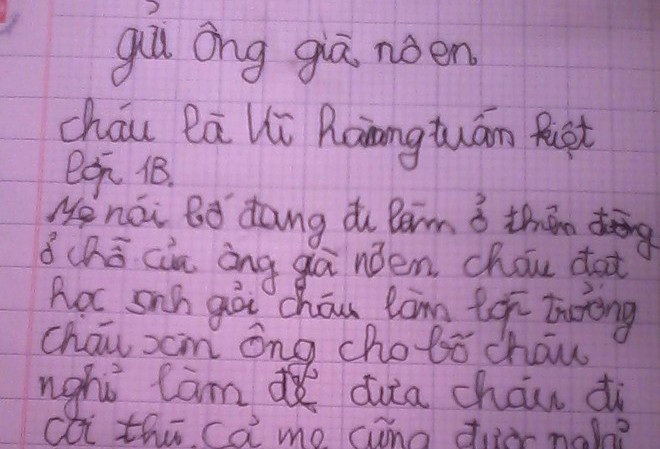 gửi ông già nô en
cháu là Vĩ hoàng tuấn kiệt
lớp 1B.
Mẹ nói bố đang đi làm ở thiên đường
ở chỗ của ông già nô en. cháu đạt
học sinh giỏi cháu làm lớp trưởng
cháu xin ông cho bố cháu
nghỉ làm để đưa cháu đi
cởi thú. Cả mẹ cũng được nghỉ